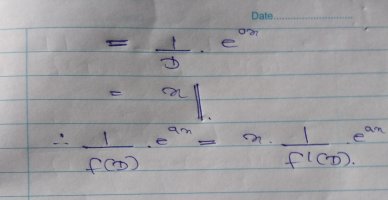 Date..............................
= 1/D . e^ax
= x
∴ 1/f(D) . e^ax = x . 1/f'(D). e^ax